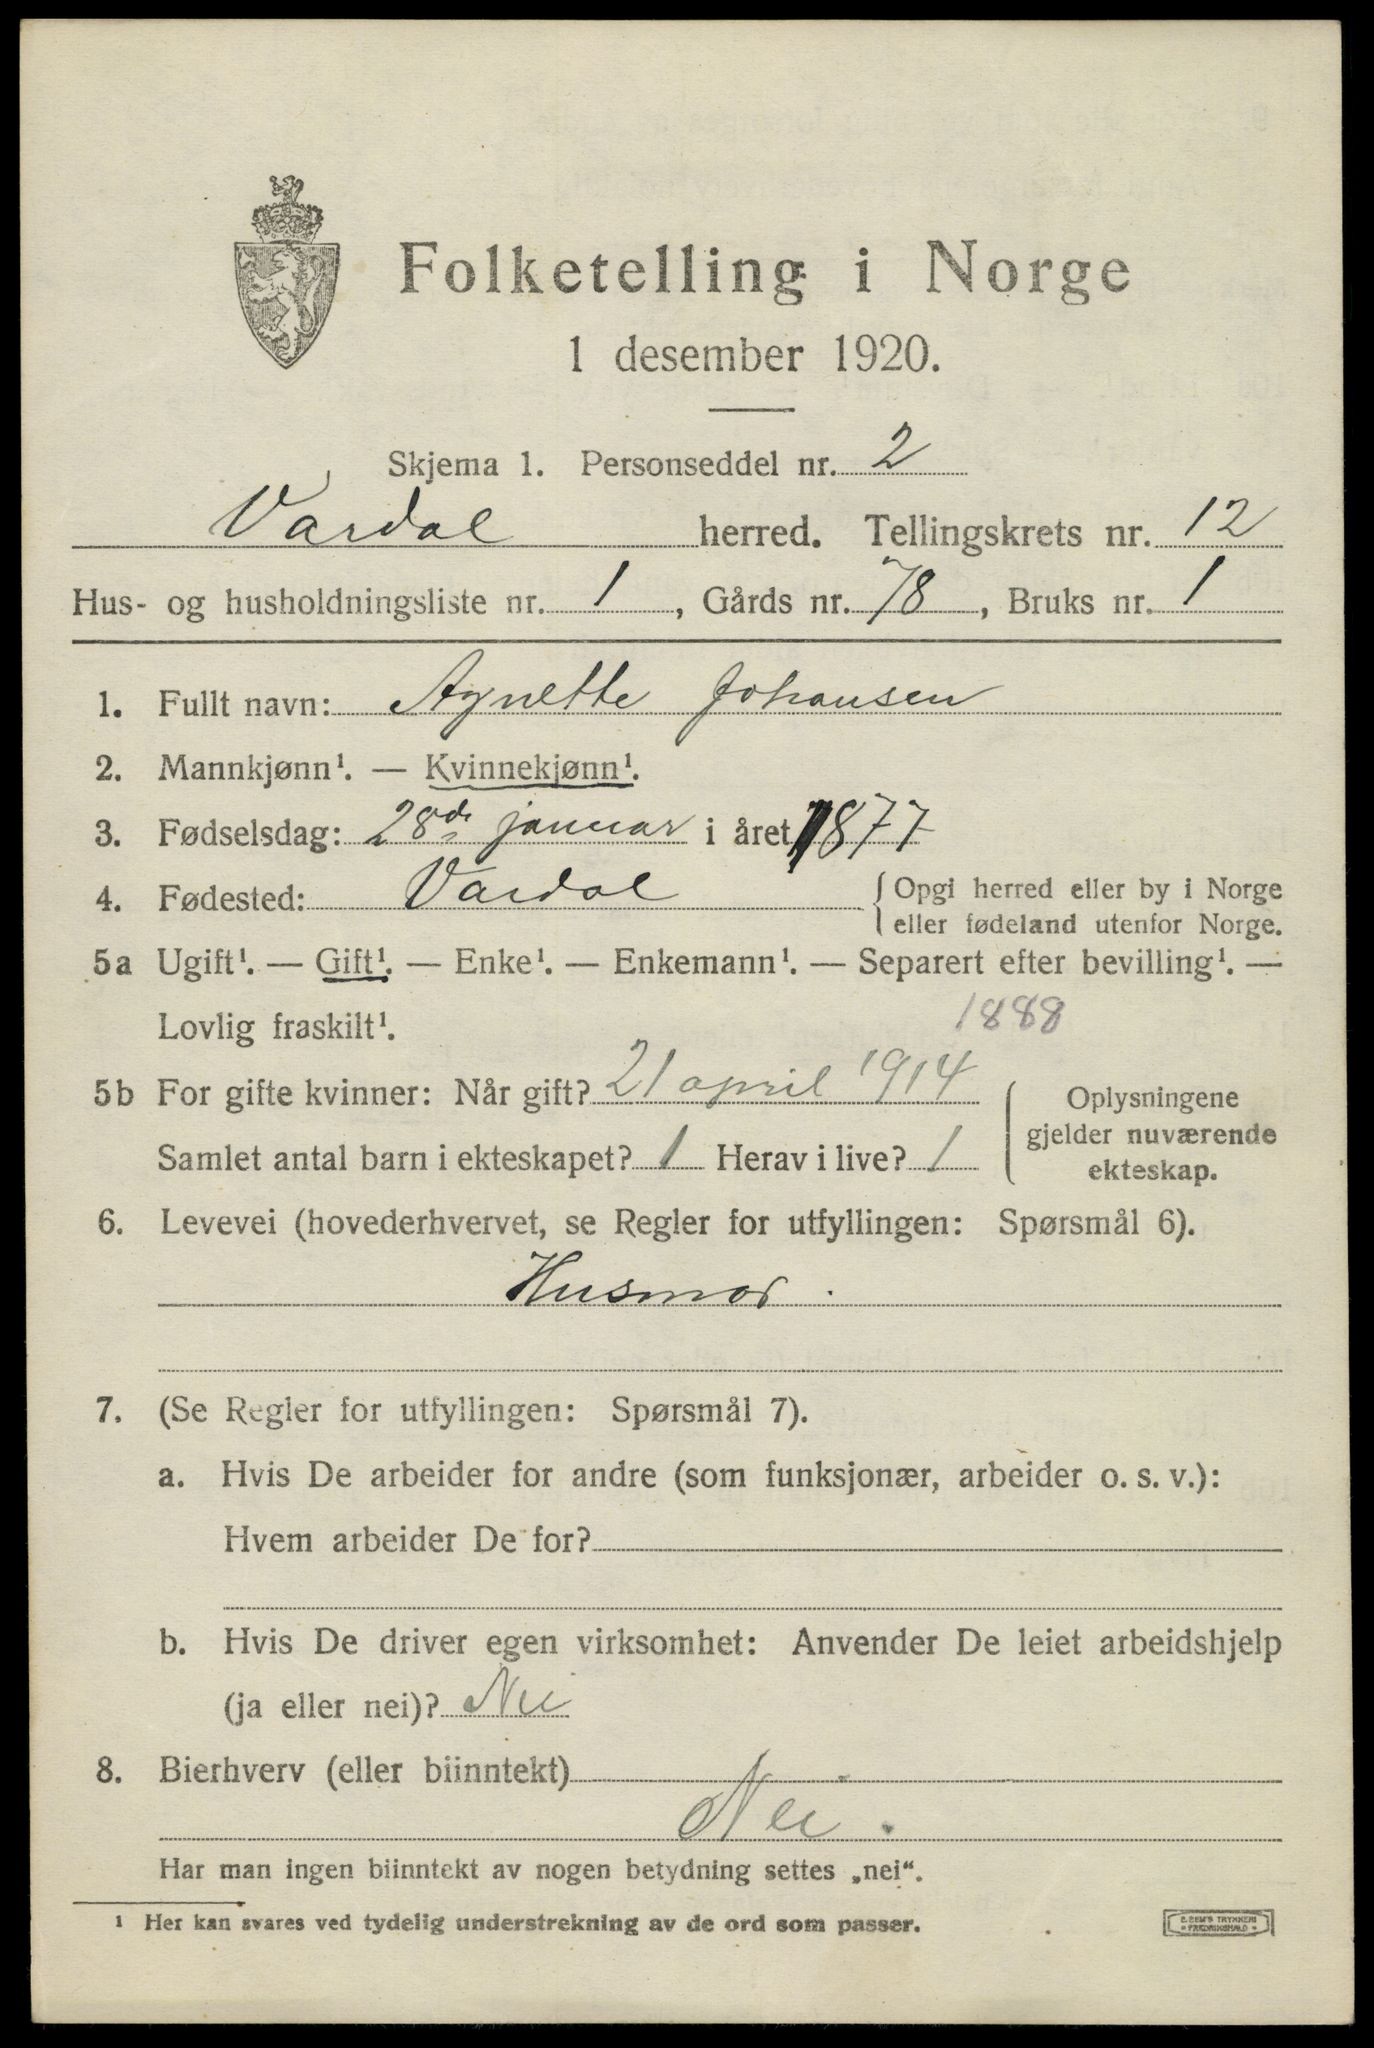 Folketelling i Norge
1 desember 1920.
Skjema 1. Personseddel nr. 2
Vardal herred. Tellingskrets nr. 12
Hus- og husholdningsliste nr. 1, Gårds nr. 78, Bruks nr. 1
1. Fullt navn: Agnette Johansen
2. Mannkjønn¹. — Kvinnekjønn¹.
3. Fødselsdag: 28de januar i året 1877
4. Fødested: Vardal { Opgi herred eller by i Norge
eller fødeland utenfor Norge.
5a Ugift¹. — Gift¹. — Enke¹. — Enkemann¹. — Separert efter bevilling¹. —
Lovlig fraskilt¹. 1888
5b For gifte kvinner: Når gift? 21 april 1914
Samlet antal barn i ekteskapet? 1 Herav i live? 1
Oplysningene
gjelder nuværende
ekteskap.
6. Levevei (hovederhvervet, se Regler for utfyllingen: Spørsmål 6).
Husmor.
7. (Se Regler for utfyllingen: Spørsmål 7).
a. Hvis De arbeider for andre (som funksjonær, arbeider o. s. v.):
Hvem arbeider De for?
b. Hvis De driver egen virksomhet: Anvender De leiet arbeidshjelp
(ja eller nei)? Nei
8. Bierhverv (eller biinntekt)
Nei.
Har man ingen biinntekt av nogen betydning settes „nei“.
¹ Her kan svares ved tydelig understrekning av de ord som passer.
E. SEM'S TRYKKERI
FREDRIKSHALD